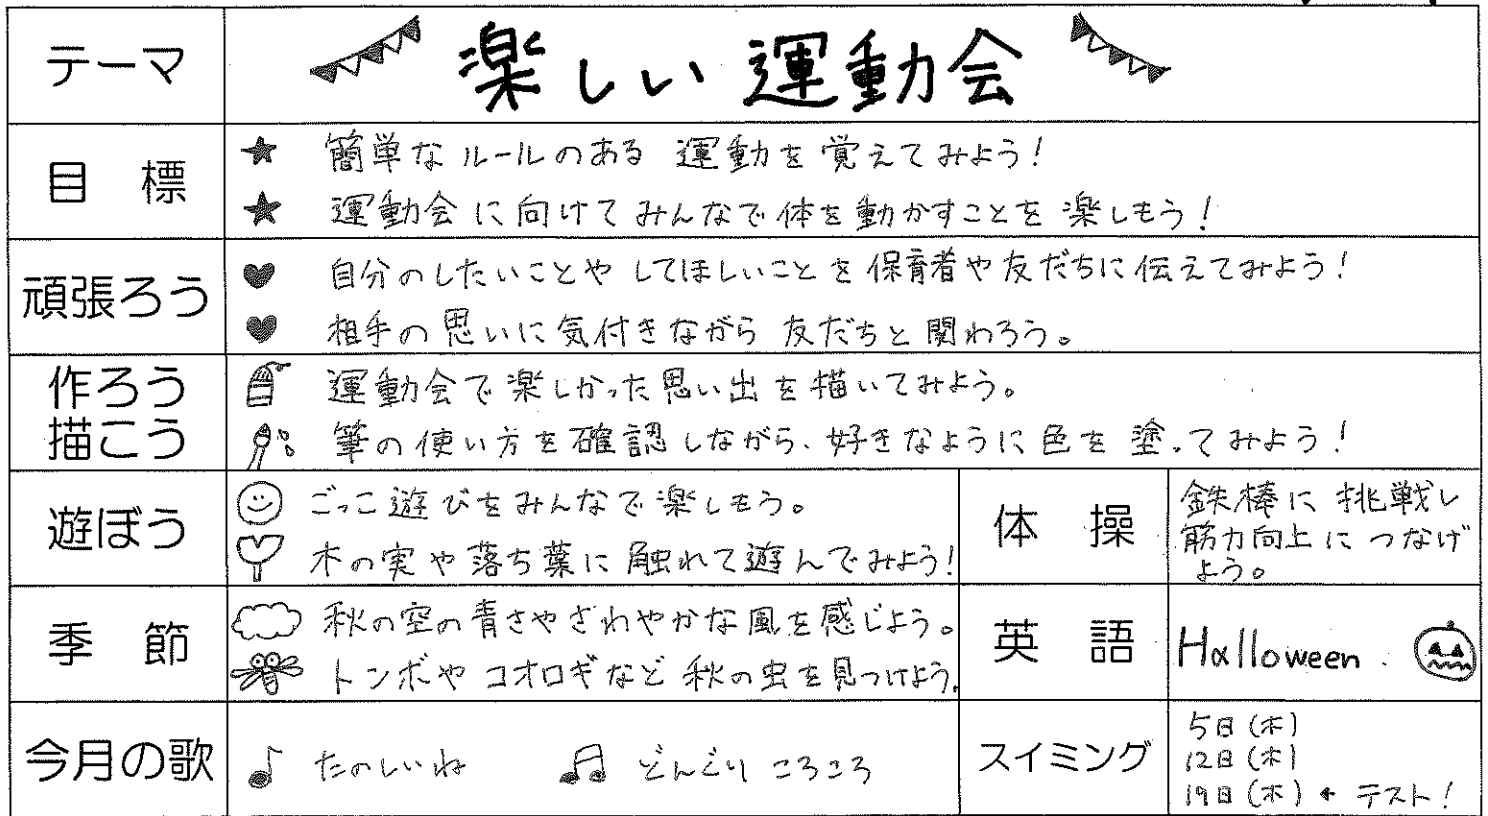 テーマ
楽しい運動会
目標
簡単なルールのある 運動を覚えてみよう!
運動会に向けてみんなで体を動かすことを楽しもう!
頑張ろう
自分のしたいことや してほしいことを保育者や友だちに伝えてみよう!
相手の思いに気付きながら 友だちと関わろう。
作ろう
描こう
運動会で楽しかった思い出を描いてみよう。
筆の使い方を確認しながら、好きなように色を塗ってみよう!
遊ぼう
ごっこ遊びをみんなで楽しもう。
木の実や落ち葉に触れて遊んでみよう!
体操
鉄棒に挑戦し
筋力向上につなげ
よう。
季節
秋の空の青さやさわやかな風を感じよう。
トンボやコオロギなど秋の虫を見つけよう。
英語
Halloween
今月の歌
たのしいね
どんぐりころころ
スイミング
5日(木)
12日(木)
19日(木) ← テスト!